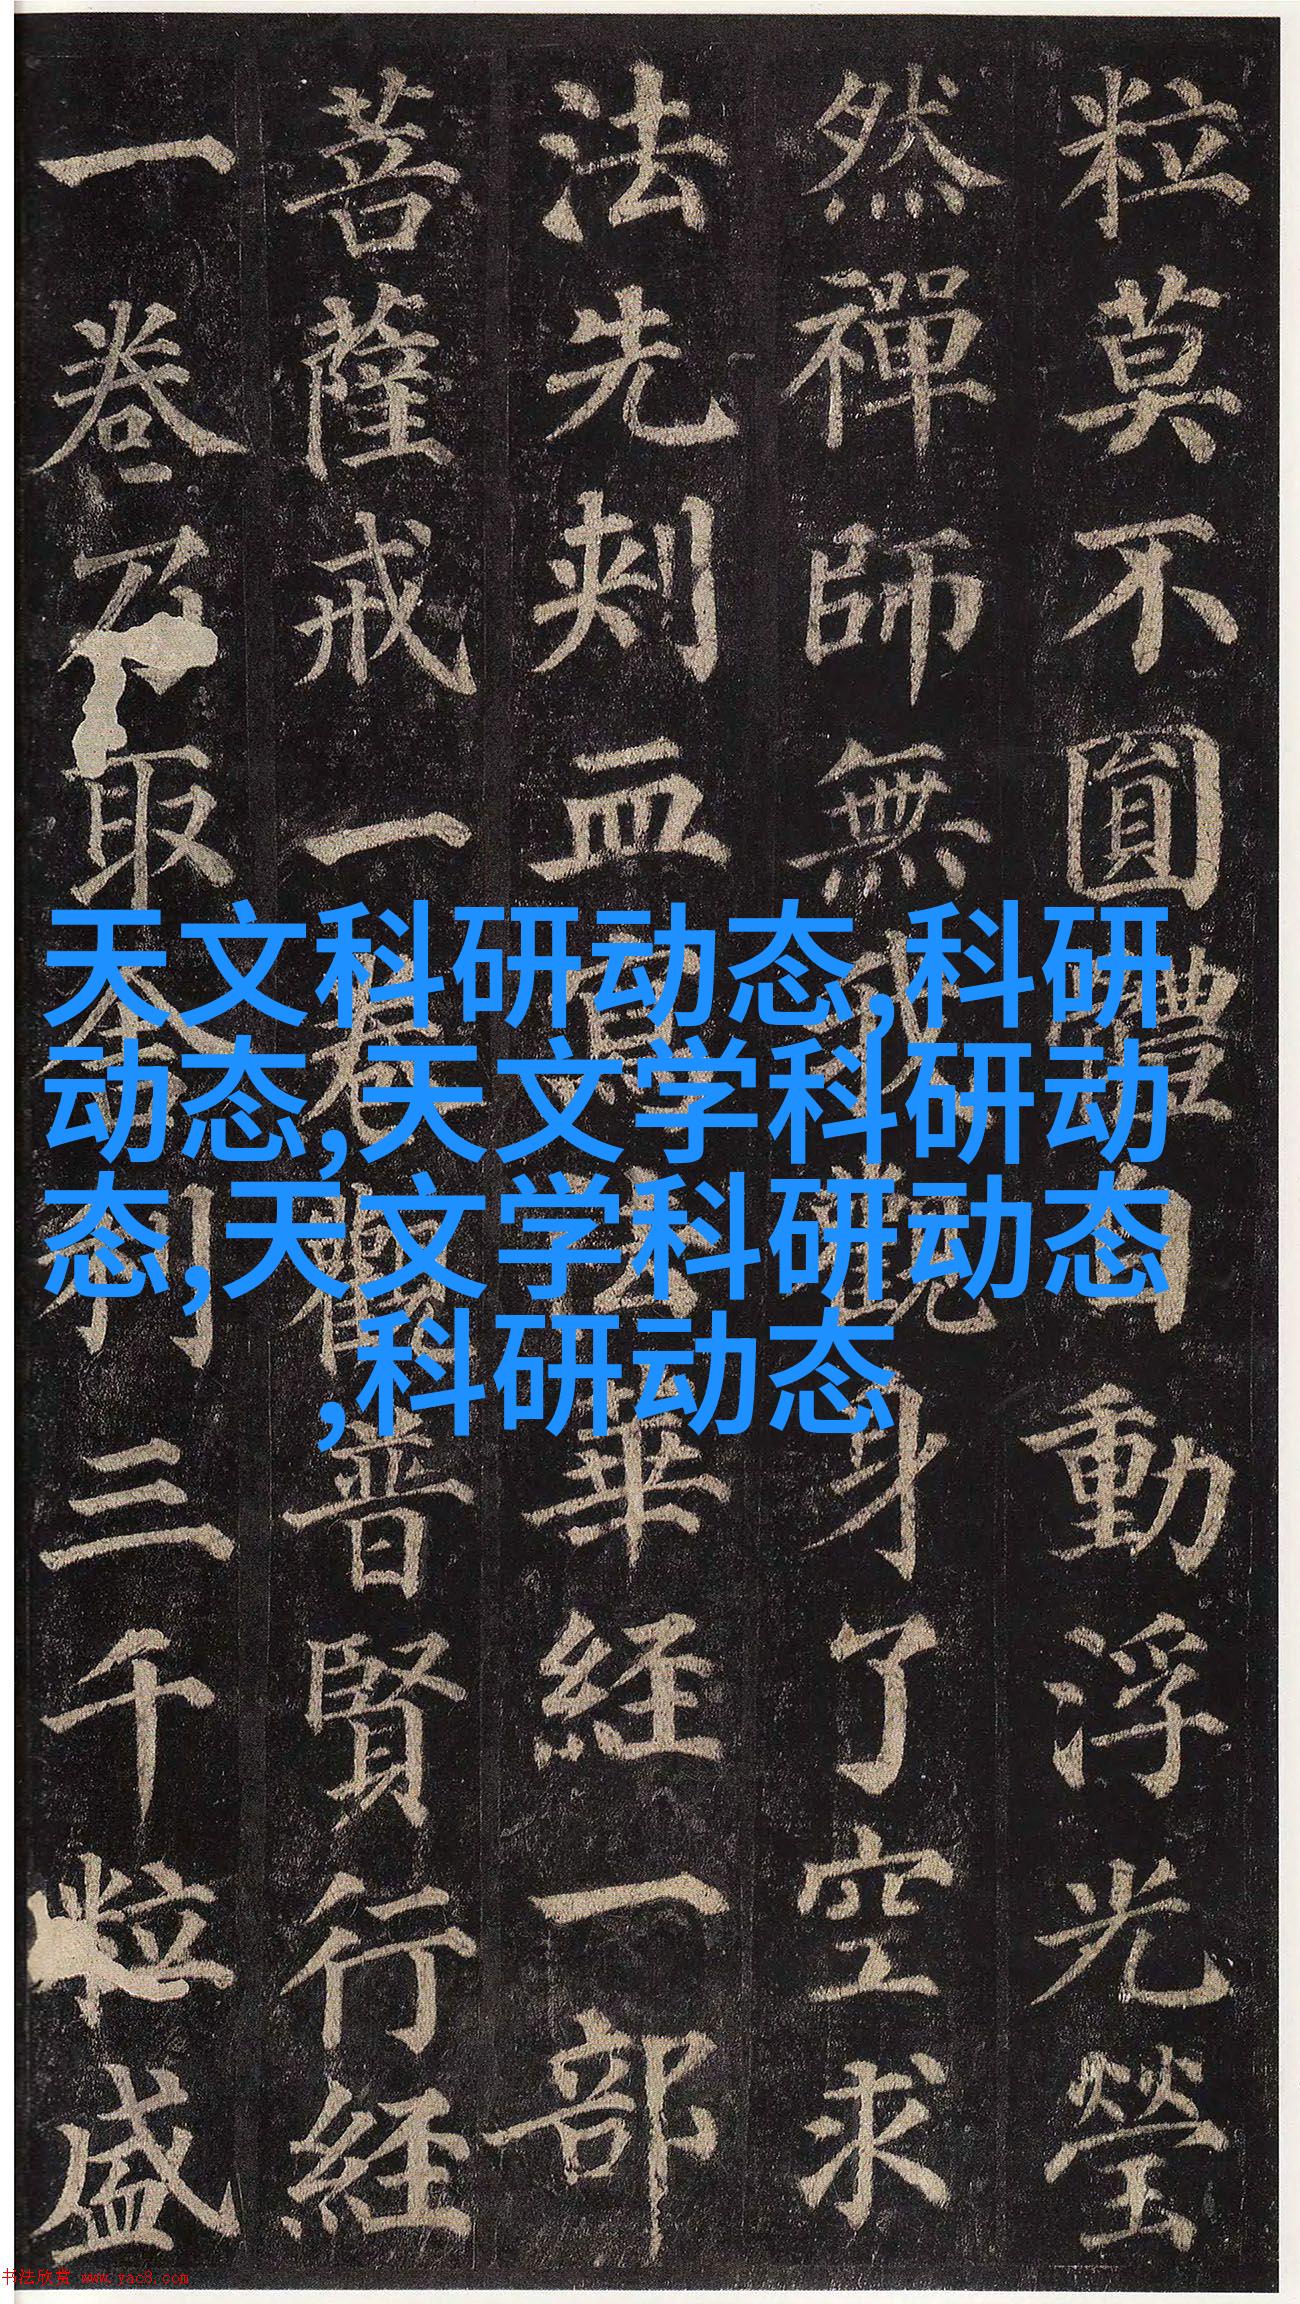 粒莫不圓體自動浮光瑩
然禪師無我觀身了空求
法先刺血寫法華経一部
菩薩戒一卷觀普賢行経
一卷乃取舍利三千粒盛
天文科研动态,科研
动态,天文学科研动
态,天文学科研动态
,科研动态
书法欣赏 www.yac8.com